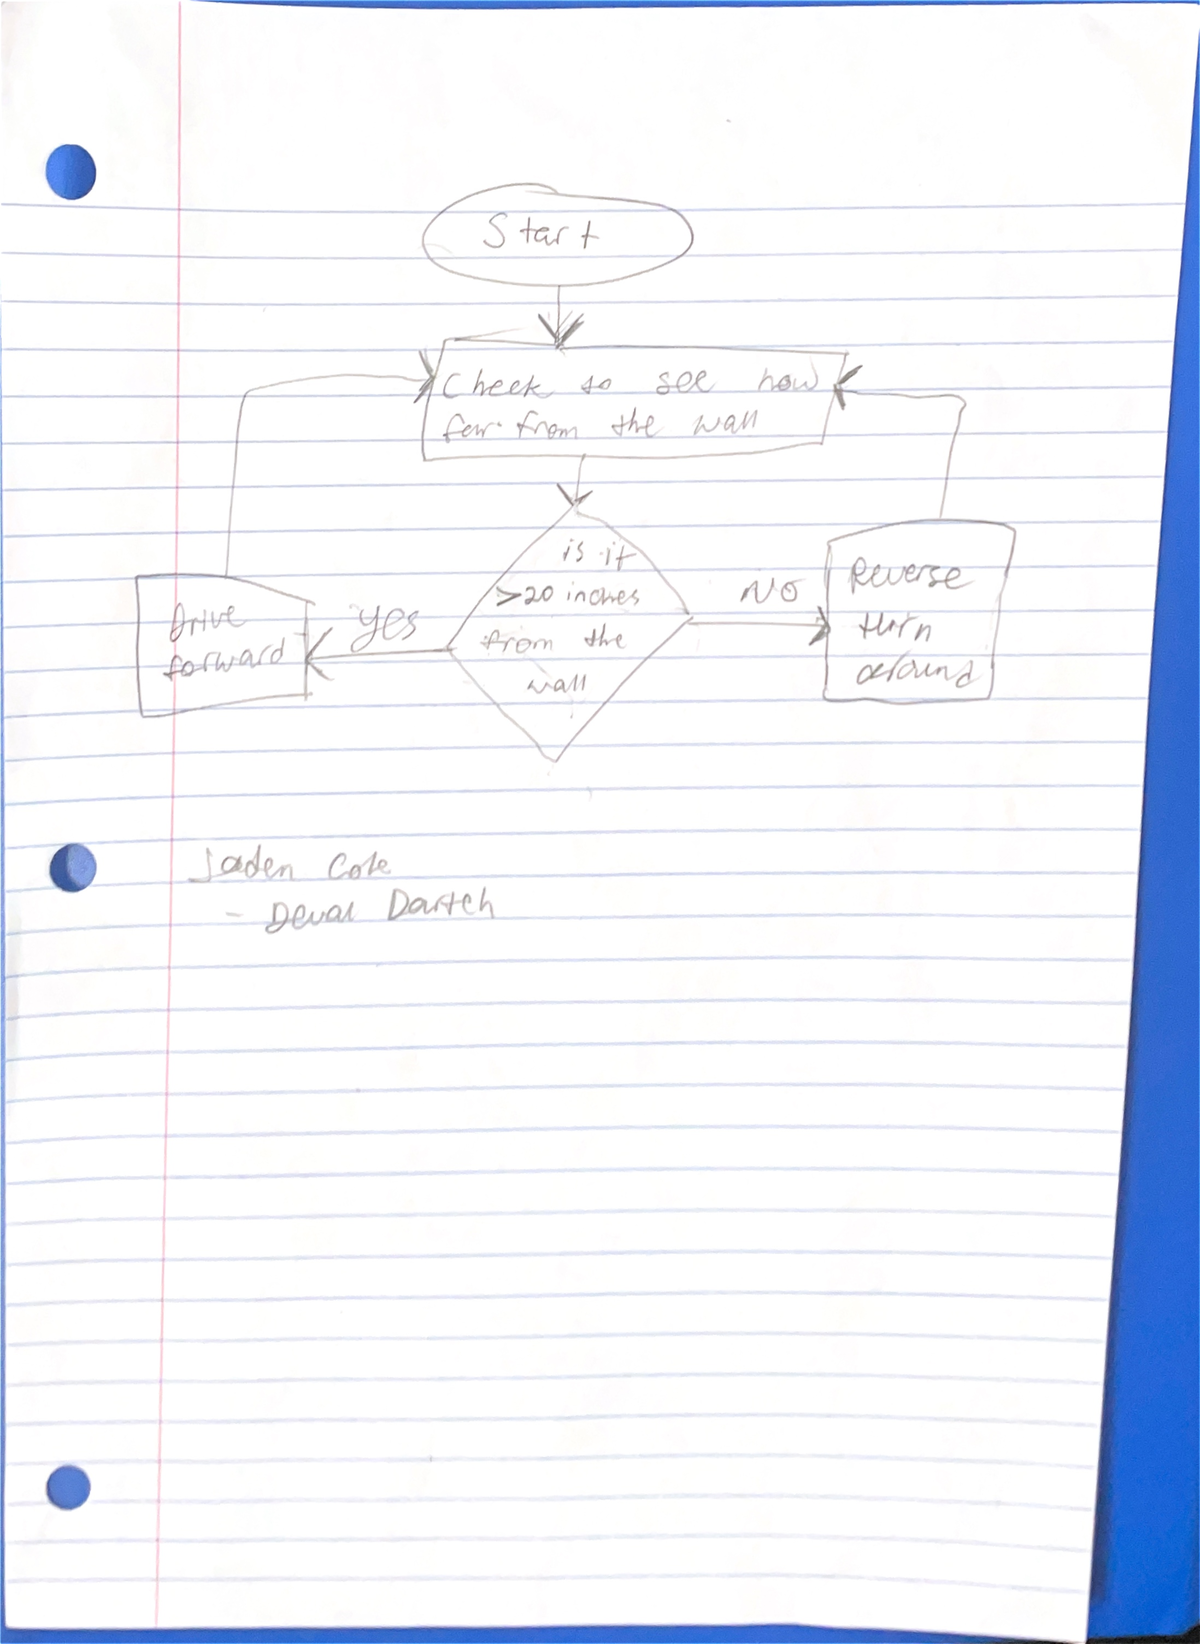 Start
Check to see how
far from the wall
is it
>20 inches
from the
wall
Yes
Drive
forward
NO
Reverse
turn
around
Jaden Cole
- Deval Dartch